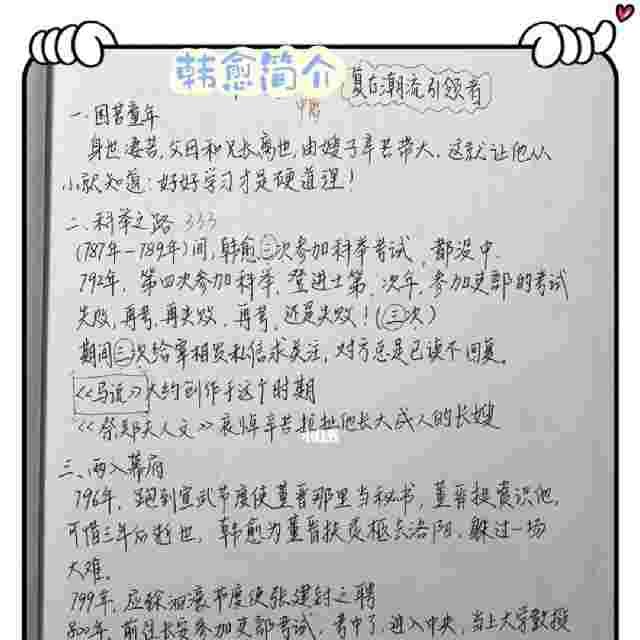 韩愈简介
复古潮流引领者
中唐
一、困苦童年
身世凄苦,父母和兄长离世,由嫂子辛苦带大。这就让他从
小就知道:好好学习才是硬道理!
二、科举之路 333
(787年-789年)间,韩愈三次参加科举考试,都没中.
792年,第四次参加科举,登进士第,次年,参加吏部的考试
失败,再考,再失败,再考,还是失败!(三次)
期间三次给宰相发私信求关注,对方总是已读不回复。
《马说》大约创作于这个时期
《祭郑夫人文》哀悼辛苦拉扯他长大成人的长嫂
三、两入幕府
796年,跑到宣武节度使董晋那里当秘书,董晋挺赏识他,
可惜三年后逝世,韩愈为董晋扶灵柩去洛阳,躲过一场
大难。
799年,应徐泗濠节度使张建封之聘
800年,前往长安参加吏部考试,考中了,进入中央,当上大学教授